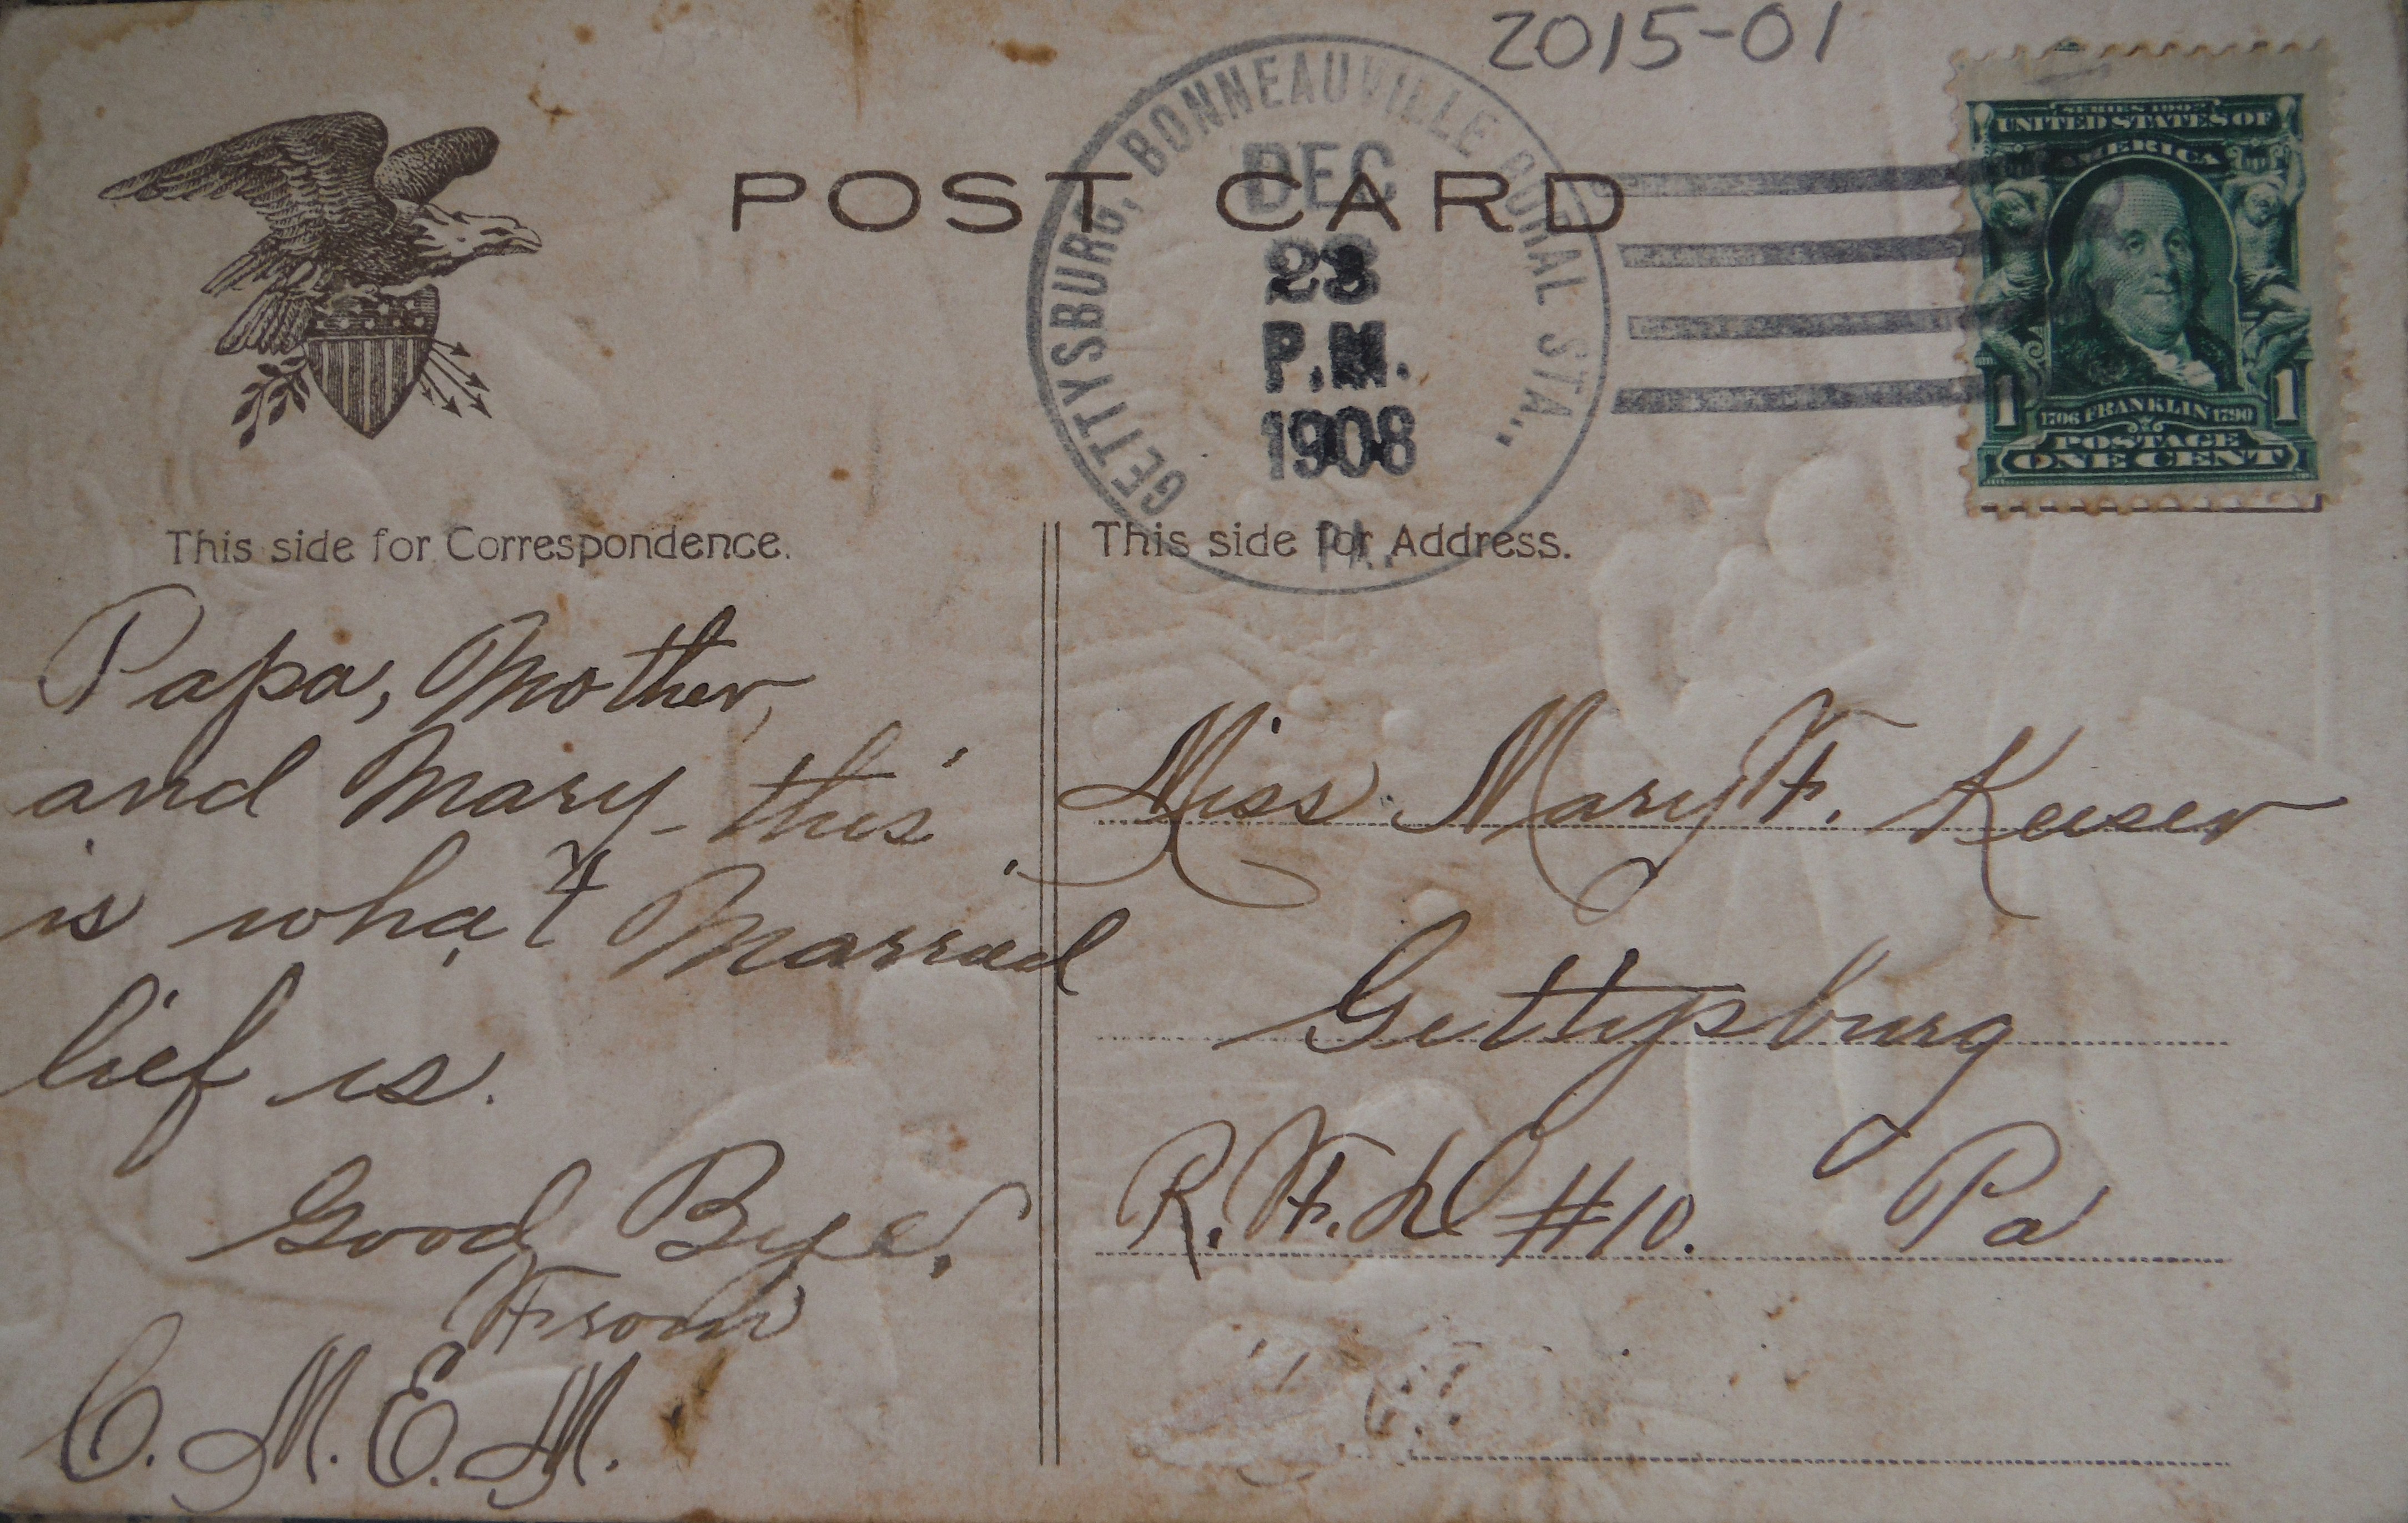 2015-01
GETTYSBURG, BONNEAUVILLE RURAL STA.,
DEC
23
P.M.
1908
PA.
SERIES 1902
UNITED STATES OF
AMERICA
1 1
1706 FRANKLIN 1790
POSTAGE
ONE CENT
POST CARD
This side for Correspondence.
Papa, Mother,
and Mary - this
is what Marraed
lief is.
Good Bye,
From
C. M. E. M.
This side for Address.
Miss Mary F. Keiser
Gettysburg
R. F. D. #10. Pa